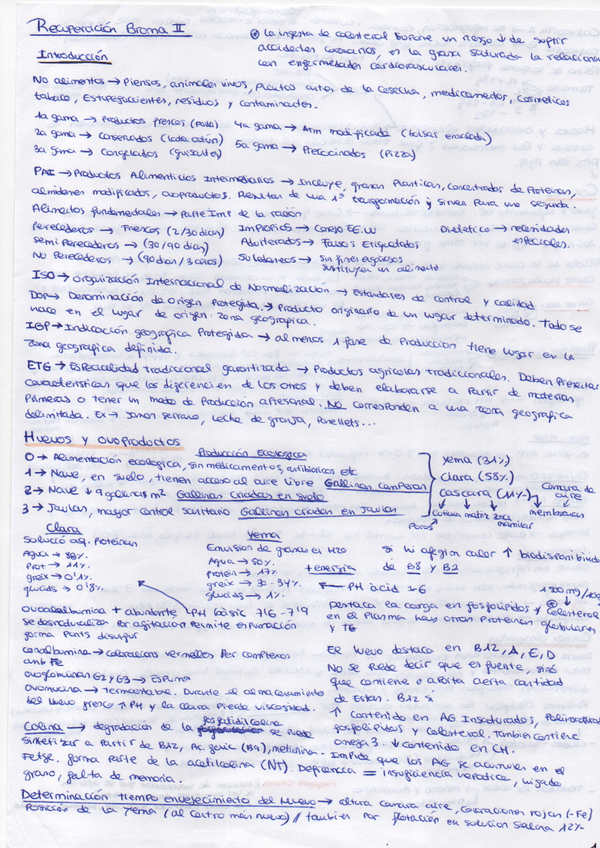 Recuperación Broma II
⊛ La ingesta de colesterol supone un riesgo ↓ de sufrir
accidentes coronarios, es la grasa saturada la relacionada
con enfermedades cardiovasculares.
Introducción
No alimentos → Piensos, animales vivos, Plantas antes de la cosecha, medicamentos, cosmeticos
tabaco, Estupefacientes, residuos y contaminantes.
1a gama → Productos frescos 4a gama → Atm modificada (bolsas ensalada)
2a gama → Conservados (lata atún) 5a gama → Precocinados (Pizza)
3a gama → Congelados (guisantes)
PAI → Productos Alimenticios Intermediarios → Incluye, grasas Plasticas, concentrados de Proteinas,
almidones modificados, ovoproductos. Resultan de una 1ª transformación y sirven Para una segunda.
Alimentos fundamentales → Parte Imp de la ración
Perecederos → Frescos (2/30 dias) Impropios → Consejo EE.UU Dietetico → necesidades
semi Perecederos → (30/90 dias) Adulterados → Falsos Etiquetados especiales.
No Perecederos → (90 dias/3 años) Sucedaneos → Sin fines engañosos
sustituyen un alimento
ISO → organización Internacional de Normalización → Estandares de control y calidad
DOP → Denominación de origen Protegida. → Producto originario de un lugar determinado. Todo se
hace en el lugar de origen. zona geografica.
IGP → Indicación geografica Protegida → al menos 1 fase de Producción tiene lugar en la
zona geografica definida.
ETG → Especialidad tradicional garantizada → Productos agricolas tradicionales. Deben Presentar
caracteristicas que los diferencien de los otros y deben elaborarse a Partir de materias
Primeras o tener un modo de Producción artesanal. No corresponden a una zona geografica
delimitada. Ex → Jamon serrano, Leche de granja, Panellets...
Huevos y ovoproductos
Producción Ecologica
0 → Alimentación ecologica, sin medicamentos, antibioticos etc
1 → Nave, en suelo, tienen acceso al aire libre Gallinas camperas
2 → Nave ↓ 9 gallinas m2 Gallinas Criadas en Suelo
3 → Jaulas, mayor control sanitario Gallinas criadas en Jaulas
Yema (31%)
clara (58%)
cascara (11%) → Camara de aire
Cuticula matriz zona mamilar membranas
Poros
Clara
Solució aq. Proteinas
Agua → 88%
Prot → 11%
greix → 0'1%
glucids → 0'8%
Yema
Emulsion de grasas en H2O
Agua → 50%
protein → 17%
greix → 30-34%
glucids → 1%
+ energia
si hi afegim calor ↑ biodisponibilidad
de B8 y B2
← PH àcid 6
Ovoalbumina + abundante PH bàsic 7'6-7'9
Se desnaturaliza Por agitación Permite espumación
forma Ponts disulfur
conalbumina → coloracions vermelles Per complexos
amb Fe
ovoglobulinas G2 y G3 → ESPUMA
Ovomucina → termoestable. Durante el almacenamiento
del huevo fresco ↑ PH y la clara Pierde viscosidad.
Destaca la carga en fosfolípidos y ⊛ Colesterol
en el Plasma hay otras Proteinas globulares
y TG
El huevo destaca en B12, A, E, D
No se Puede decir que es fuente, sinó
que contiene o aporta cierta cantidad
de Estas. B12 si
↑ Contenido en AG Insaturados, Poliinsaturados
fosfolípidos y Colesterol. También contiene
omega 3. ↓ contenido en CH.
Colina → degradación de la fosfatidilcolina se puede
sintetizar a Partir de B12, Ac folic (B9), metionina. Impide que los AG se acumulen en el
Fetge. forma Parte de la acetilcolina (NT). Deficiencia = insuficiencia hepatica, higado
graso, falta de memoria.
Determinación tiempo envejecimiento del Huevo → altura camara aire, coloraciones rojas (-Fe)
Posición de la Yema (al centro más nuevo) // también por flotación en solucion Salina 12%